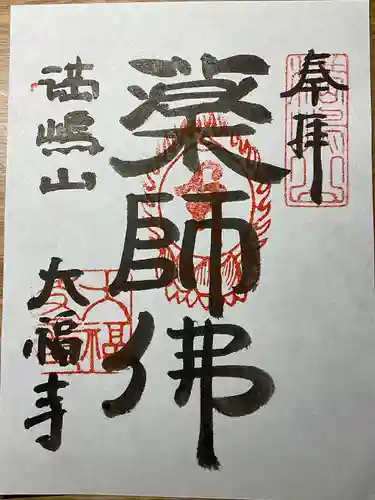 奉拝
薬師佛
嶋山
大福寺